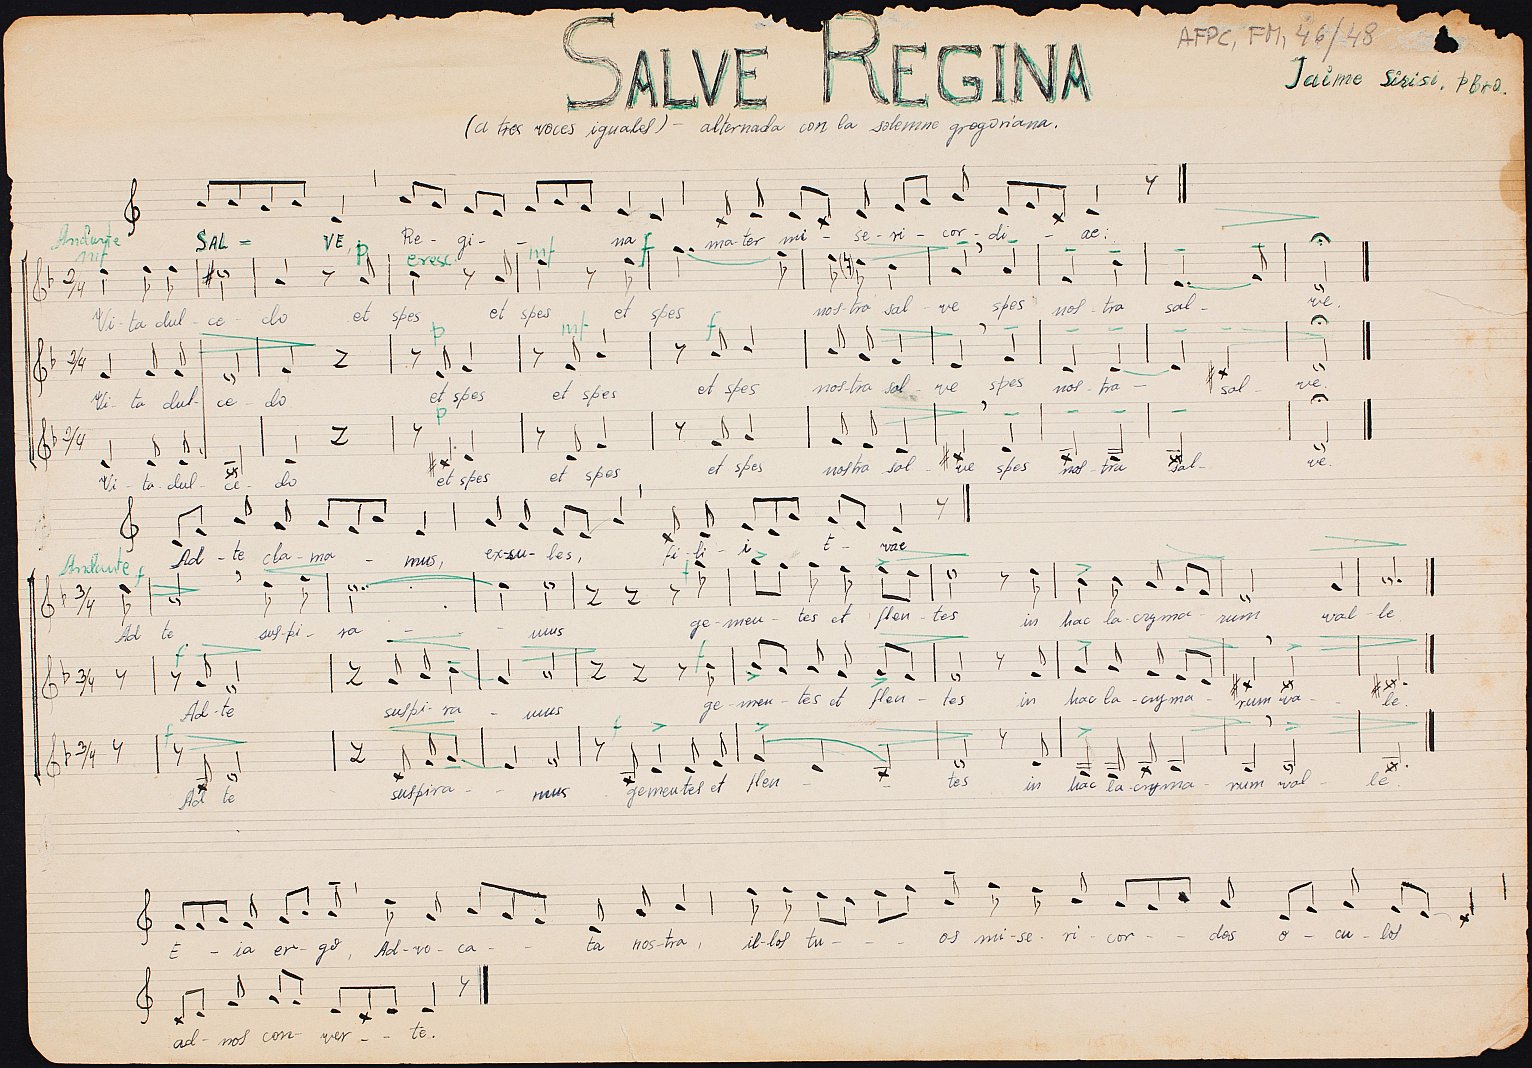 AFPC, FM, 46/48
SALVE REGINA
Jaime Sirisi, pbro.
(a tres voces iguales) - alternada con la solemne gregoriana.
SAL - VE, Re - gi - - na ma-ter mi - se - ri - cor - di - ae:
Andante
mf p cresc. mf f
2/4
Vi-ta dul - ce - do et spes et spes et spes nos-tra sal - ve spes nos - tra sal - ve.
p mf f
2/4
Vi - ta dul - ce - do et spes et spes et spes nos-tra sal - ve spes nos - tra - sal - ve.
p
2/4
Vi - ta - dul - ce - do et spes et spes et spes nostra sal - ve spes nos - tra sal - ve.
Ad - te cla - ma - mus, ex-su - les, fi - li - i E - vae
Andante f f
3/4
Ad te sus-pi - ra - - mus ge-men - tes et flen - tes in hac la-cryma - rum val - le.
f f
3/4
Ad-te suspi-ra - mus ge-men - tes et flen - tes in hac la-cryma - rum va - - le.
f f
3/4
Ad te suspira - - mus gementes et flen - - tes in hac la-cryma - rum val - le.
E - ia er-go, Ad-vo-ca - - ta nos-tra, il-los tu - - - os mi-se-ri-cor - - des o - cu - los
ad-nos con-ver - - te.